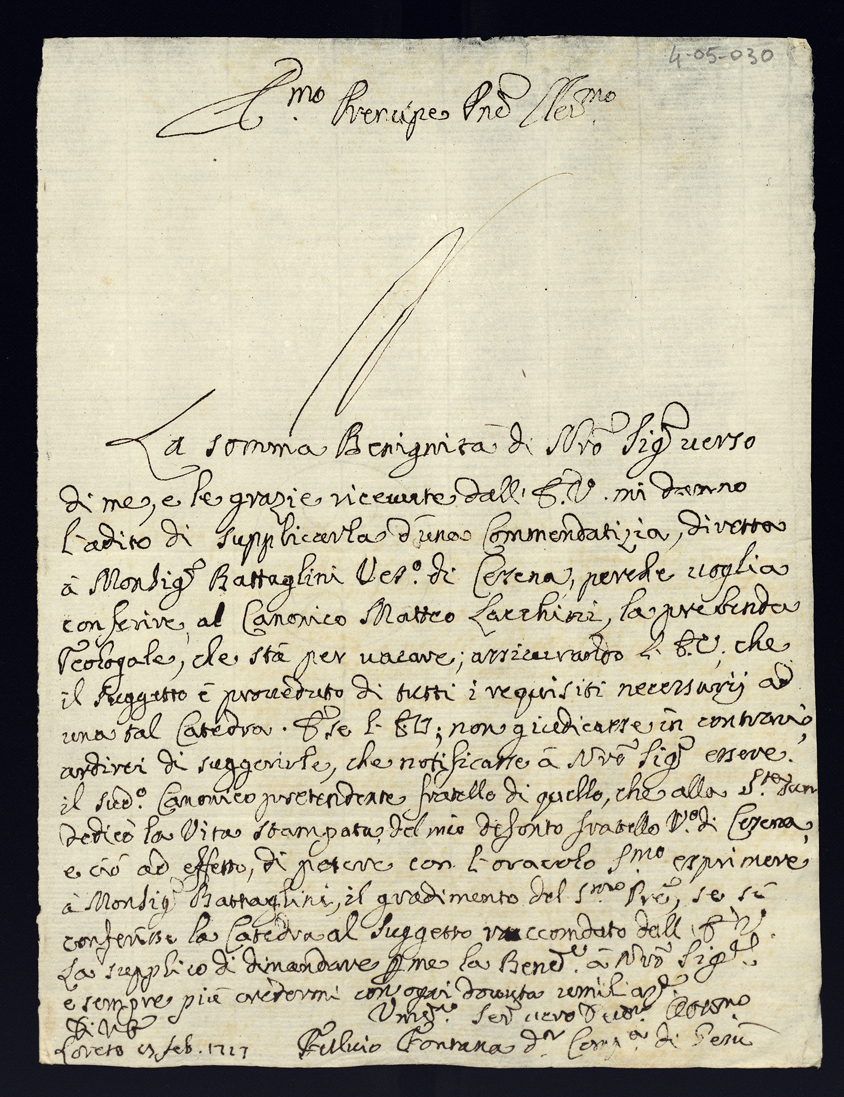 4-05-030
Em.mo Prencipe Pne Clem.mo
La somma Benignità di Nrō Sigr̄ verso
di me, e le grazie ricevute dall' E. V. mi danno
l'adito di supplicarla d'una Commendatizia, diretta
à Monsigr̄ Battaglini Ves.o di Cesena, perche voglia
conferire, al Canonico Matteo Lacchini, la prebenda
Teologale, che stà per vacare; assicurando l' E. V. che
il suggetto è proveduto di tutti i requisiti necessarij ad
una tal Catedra. Se l' E V; non giudicasse in contrario,
ardirei di suggerirle, che notificasse à Nrō Sigr̄ essere
il sud.o Canonico pretendente fratello di quello, che alla S.tà Sua
dedicò la Vita stampata, del mio defonto fratello V.o di Cesena,
e ciò ad effetto, di potere con l'oracolo S.mo esprimere
à Monsigr̄ Battaglini, il gradimento del S.mo Prē, se si
conferisse la Catedra al suggetto raccomdato dall' E. V.
La supplico di dimandare p me la Bened.e à Nrō Sigr̄
e sempre più credermi con ogni dovuta umil
Di V E
Vmo Ser vero
Loreto feb. 1717 Fulvio Fontana d. Comp.a di Gesù